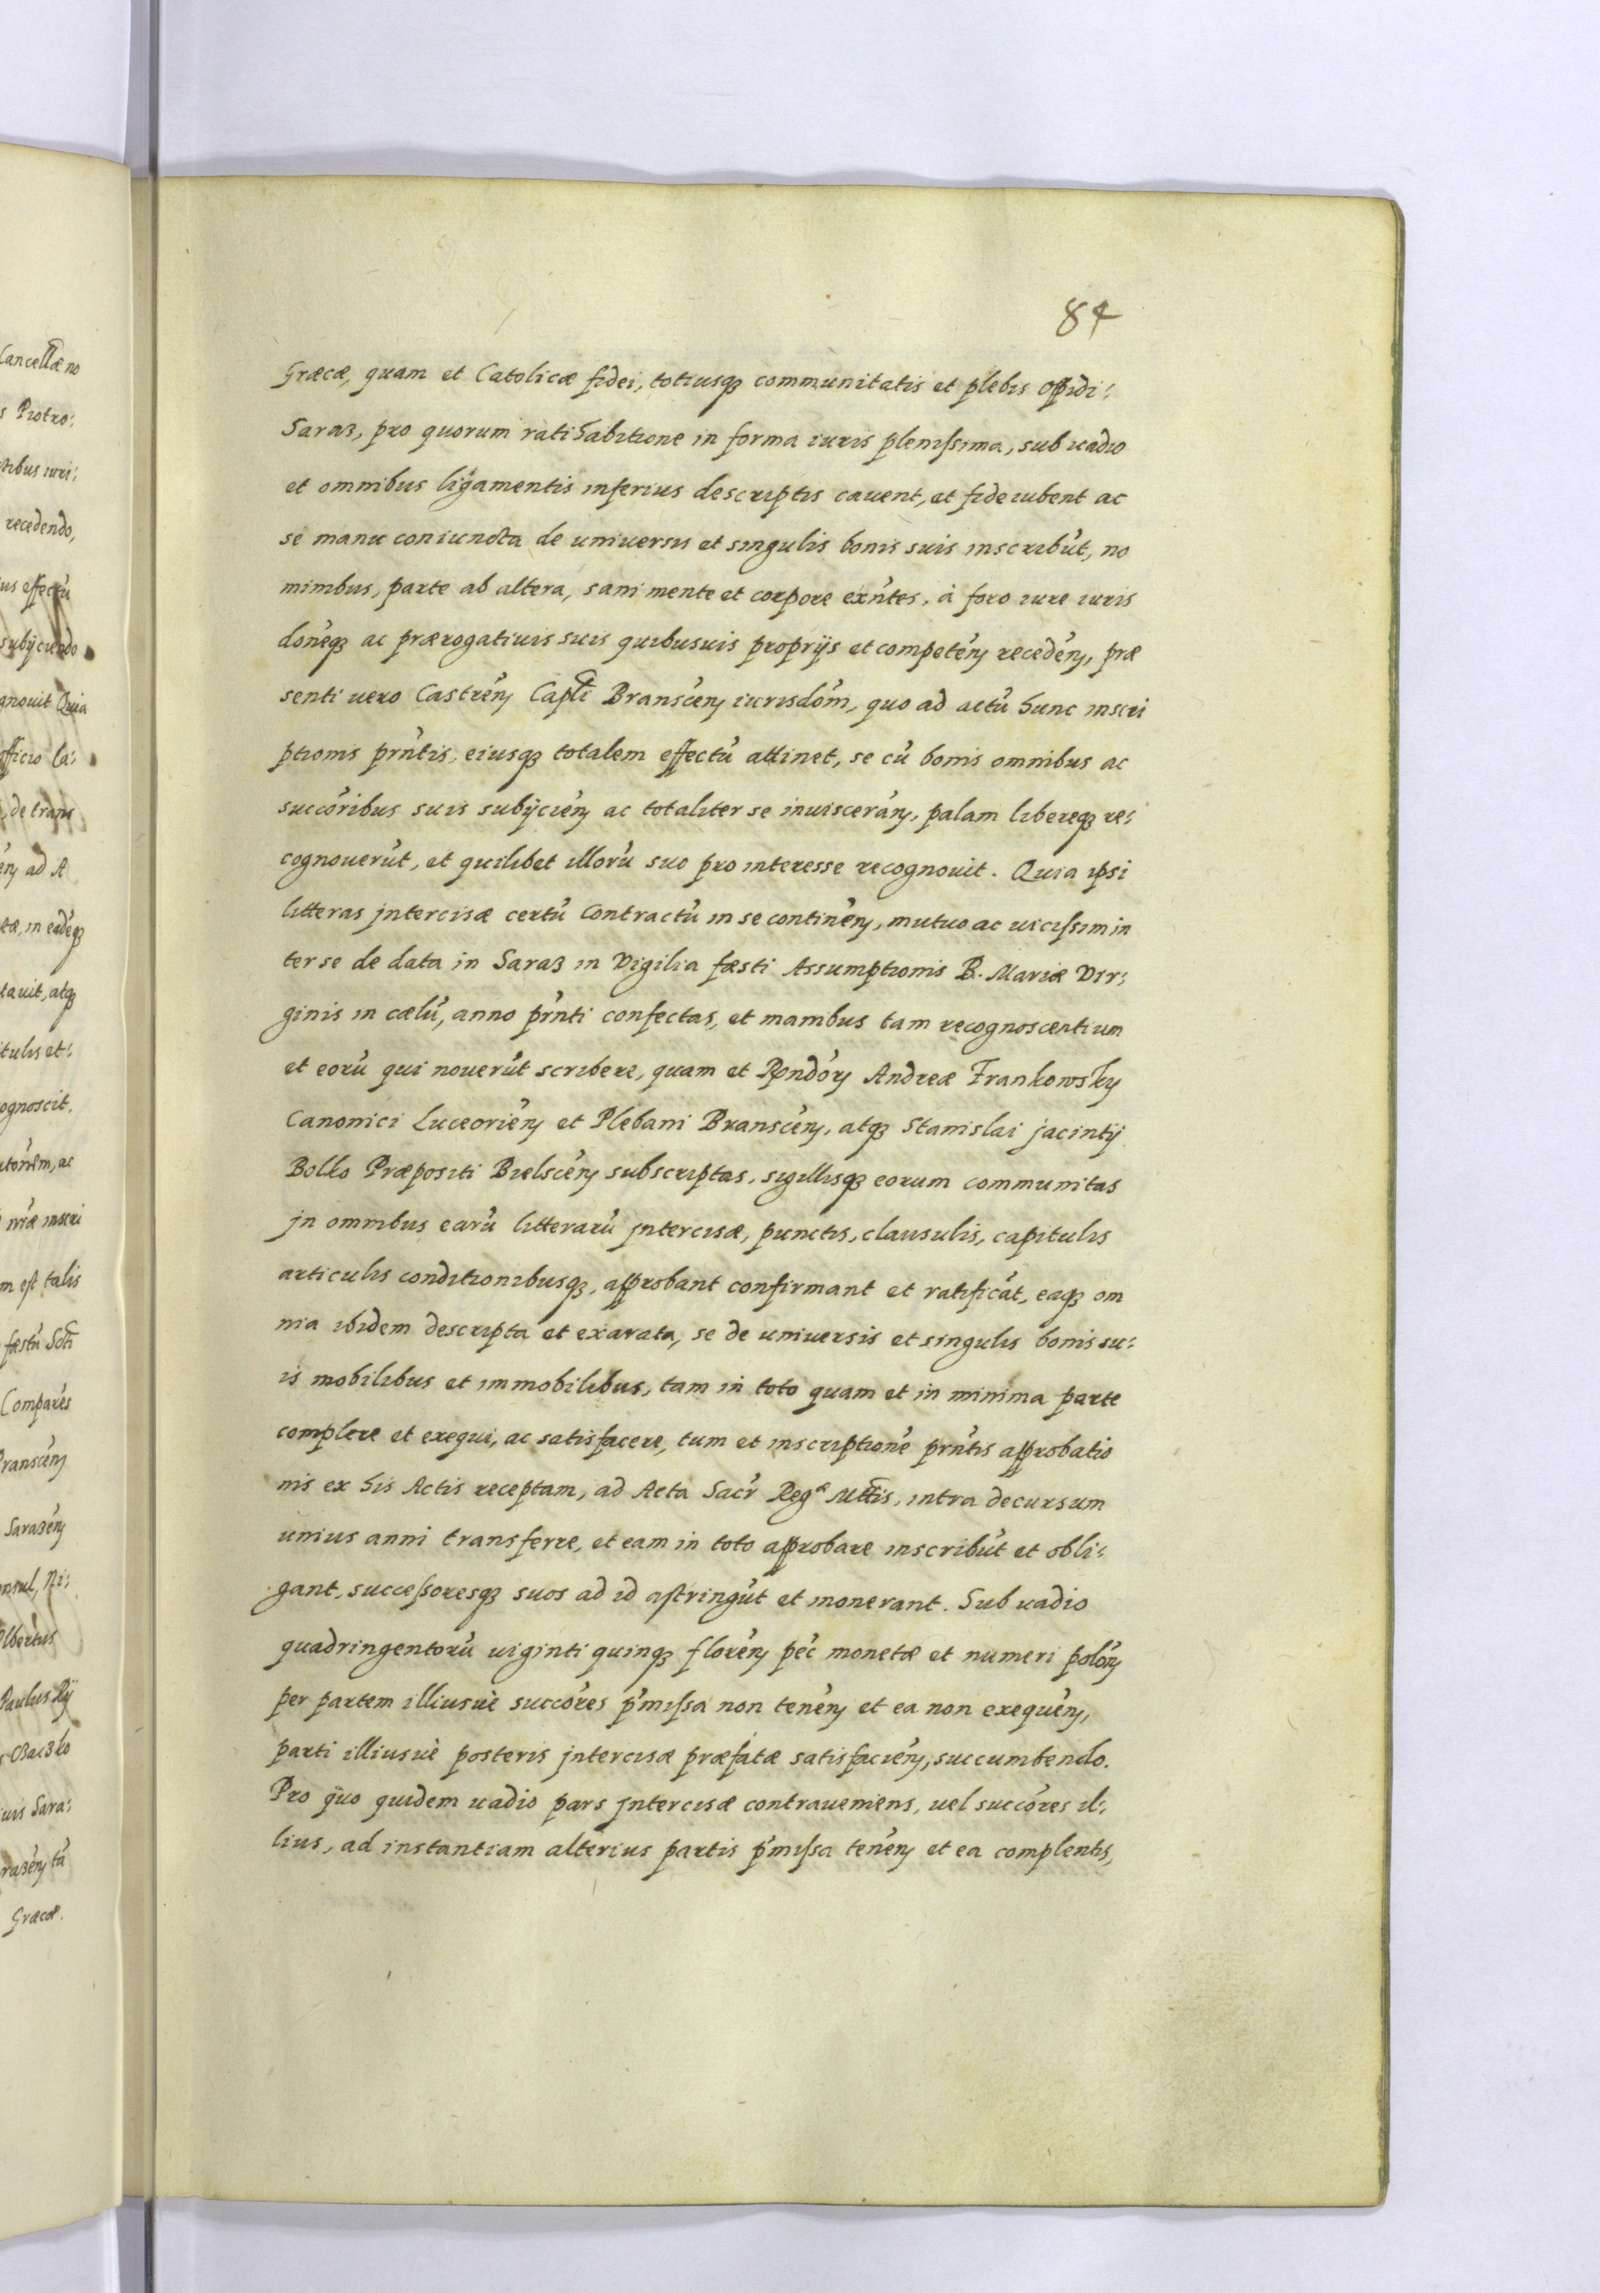 84
Græcæ, quam et Catolicæ fidei, totiusq3 communitatis et plebis oppidi:
Saraz, pro quorum ratihabitione in forma iuris plenissima, sub uadio
et omnibus ligamentis inferius descriptis cauent, et fide iubent ac
se manu coniuncta de uniuersis et singulis bonis suis inscribút, no
minibus, parte ab altera, sani mente et corpore exńtes, à foro iure iuris
donéq3 ac prærogatiuis suis quibusuis proprijs et competéń recedéń, præ
senti uero Castréń Capłi Branscéń iurisdóm, quo ad actú hunc inscri
ptionis prńtis, eiusq3 totalem effectú attinet, se cú bonis omnibus ac
succóribus suis subijciéń ac totaliter se inuisceráń, palam libereq3 re:
cognouerút, et quilibet illorú suo pro interesse recognouit. Quia ipsi
litteras jntercisæ certú contractú in se continéń, mutuo ac uicissim in
ter se de data in Saraz in Vigilia fæsti Assumptionis B. Mariæ Vir:
ginis in cælú, anno prńti confectas, et manibus tam recognoscentium
et eorú qui nouerút scribere, quam et Rńdóń Andreæ Frankowsky
Canonici Luceoriéń et Plebani Branscéń, atq3 Stanislai jacintij
Bolko Præpositi Bielscéń subscriptas, sigillisq3 eorum communitas
jn omnibus earú litterarú jntercisæ, punctis, clausulis, capitulis
articulis conditionibusq3, approbant confirmant et ratificát, eaq3 om
nia ibidem descripta et exarata, se de uniuersis et singulis bonis su:
is mobilibus et immobilibus, tam in toto quam et in minima parte
complere et exequi, ac satisfacere, tum et inscriptioné prńtis approbatio
nis ex his Actis receptam, ad Acta Sacŕ Reg^æ Mttis, intra decursum
unius anni transferre, et eam in toto approbare inscribút et obli:
gant, successoresq3 suos ad id astringút et inonerant. Sub uadio
quadringentorú uiginti quinq3 floréń péc monetæ et numeri polóń
per partem illiusuè succóres ṕmissa non tenéń et ea non exequéń,
parti illiusuè posteris jntercisæ præfatæ satisfaciéń, succumbendo.
Pro quo quidem uadio pars jntercisæ contraueniens, uel succóres il:
lius, ad instantiam alterius partis ṕmissa tenéń et ea complentis,